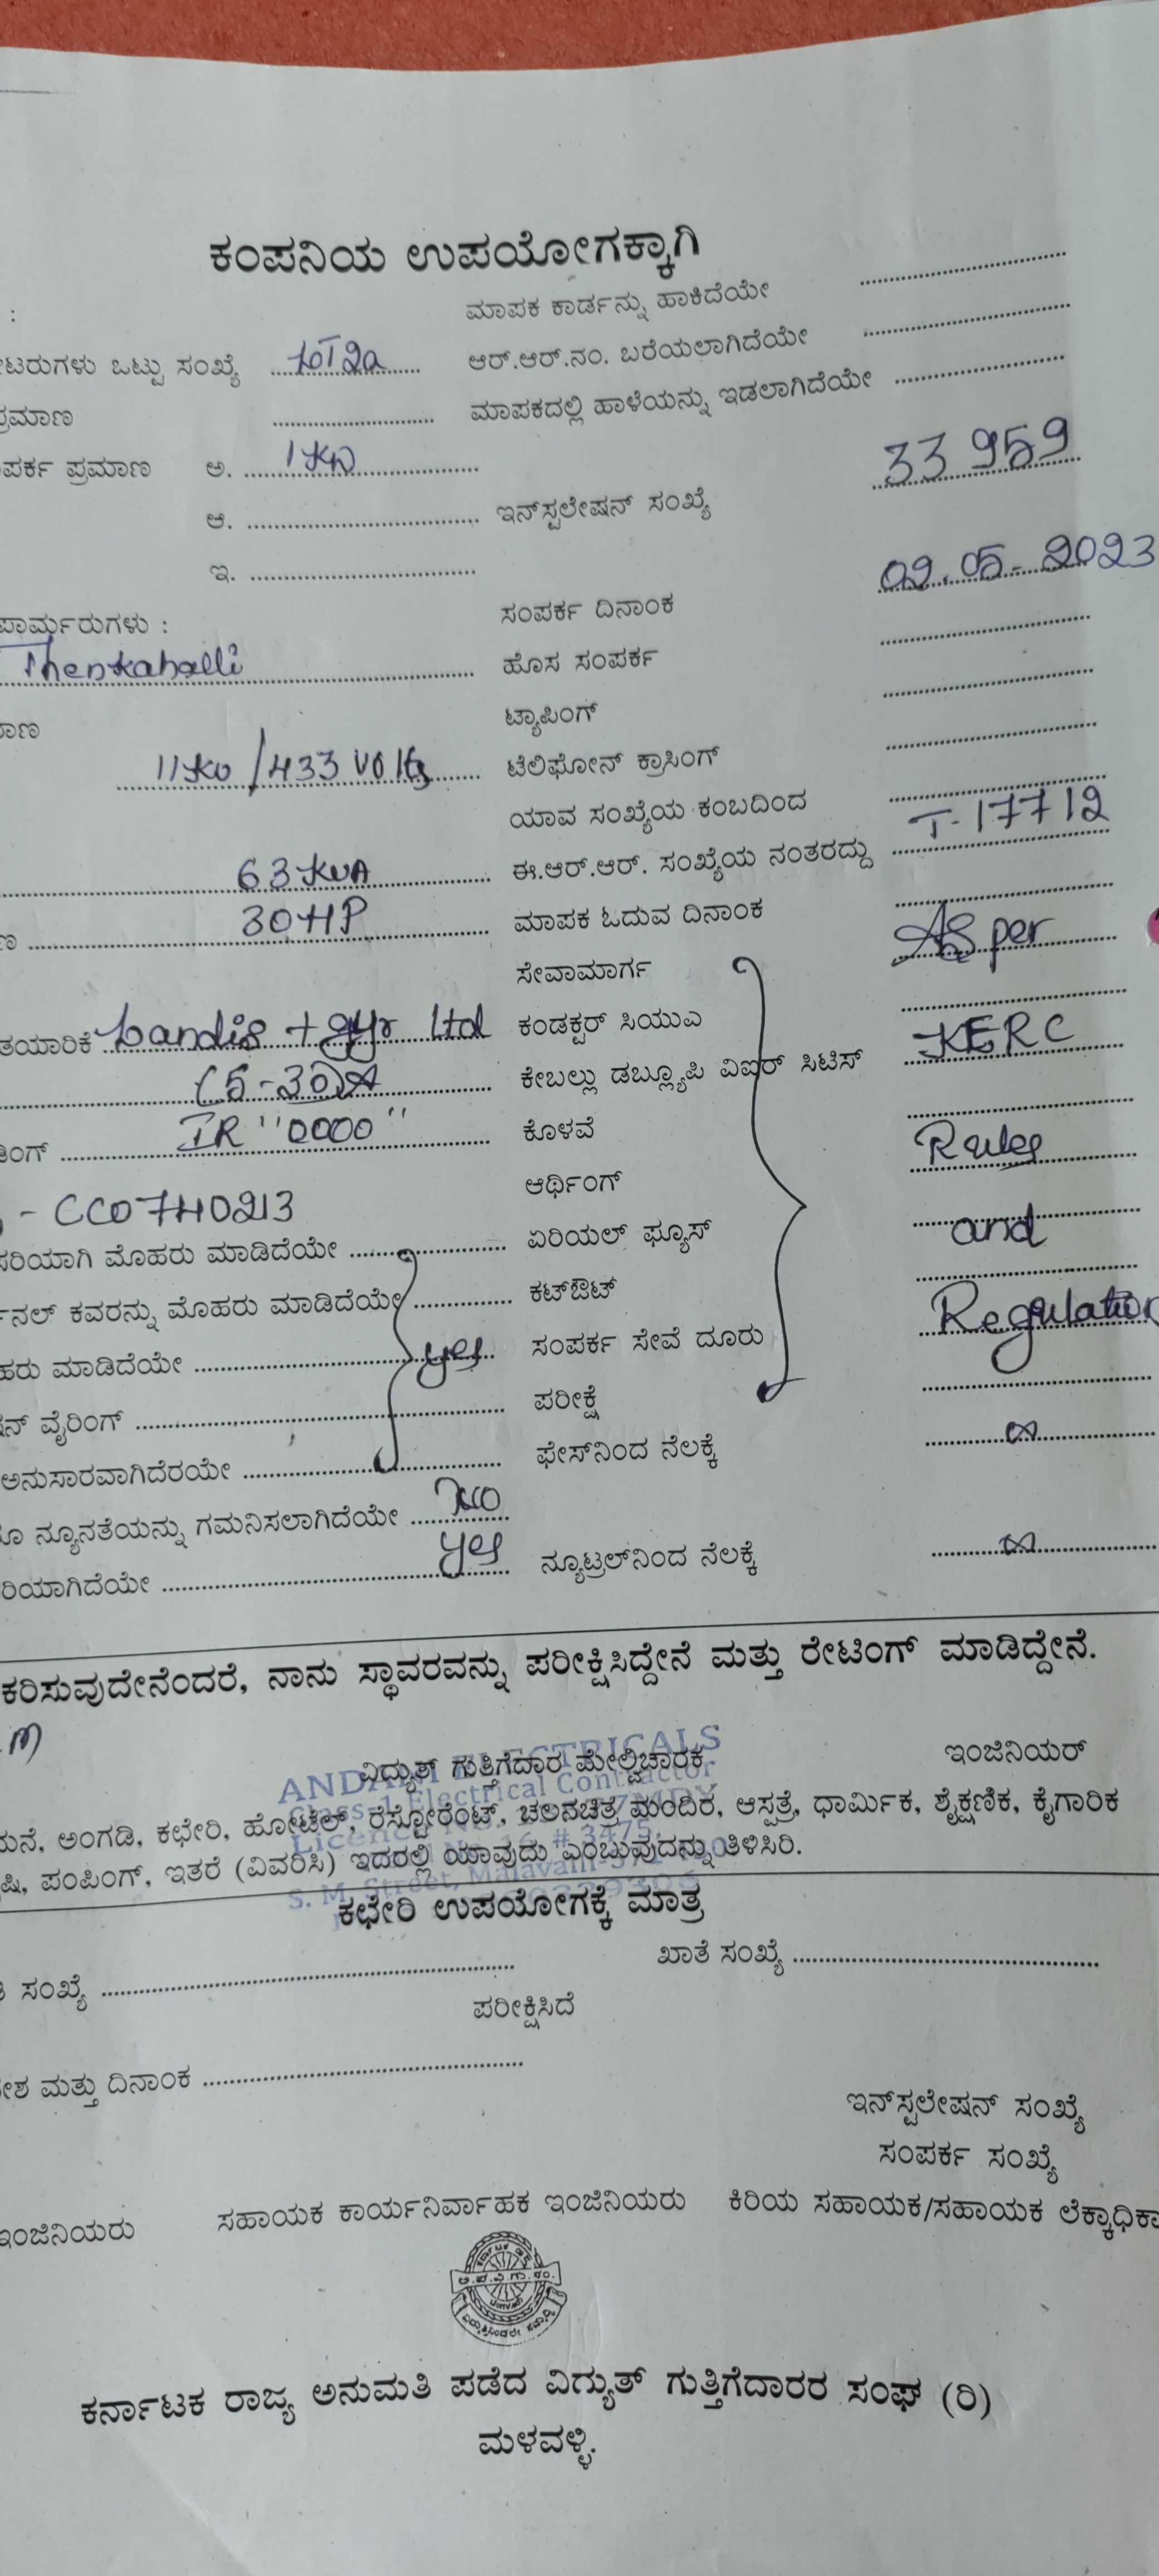 ಕಂಪನಿಯ ಉಪಯೋಗಕ್ಕಾಗಿ
: ಮಾಪಕ ಕಾರ್ಡನ್ನು ಹಾಕಿದೆಯೇ ..............................
ಟರುಗಳು ಒಟ್ಟು ಸಂಖ್ಯೆ .............................. ಆರ್.ಆರ್.ನಂ. ಬರೆಯಲಾಗಿದೆಯೇ ..............................
ಪ್ರಮಾಣ .............................. ಮಾಪಕದಲ್ಲಿ ಹಾಳೆಯನ್ನು ಇಡಲಾಗಿದೆಯೇ ..............................
ಪರ್ಕ ಪ್ರಮಾಣ ಅ. 1 KW
ಆ. .............................. ಇನ್‌ಸ್ಟಲೇಷನ್ ಸಂಖ್ಯೆ 33959
ಇ. ..............................
ಪಾರ್ಮರುಗಳು : ಸಂಪರ್ಕ ದಿನಾಂಕ 02.05-2023
Thenkahalli ಹೊಸ ಸಂಪರ್ಕ ..............................
ಮಾಣ ಟ್ಯಾಪಿಂಗ್ ..............................
11KV/433 Volts ಟೆಲಿಫೋನ್ ಕ್ರಾಸಿಂಗ್ ..............................
ಯಾವ ಸಂಖ್ಯೆಯ ಕಂಬದಿಂದ ..............................
63 KVA ಈ.ಆರ್.ಆರ್. ಸಂಖ್ಯೆಯ ನಂತರದ್ದು T-17712
ಣ 30 HP ಮಾಪಕ ಓದುವ ದಿನಾಂಕ ..............................
ಸೇವಾಮಾರ್ಗ As per
ತಯಾರಿಕೆ Landis + gyr Ltd ಕಂಡಕ್ಟರ್ ಸಿಯುಎ
(5-30)A ಕೇಬಲ್ಲು ಡಬ್ಲ್ಯೂಪಿ ವಿಐರ್ ಸಿಟಿಸ್ KERC
ಡಿಂಗ್ IR "0000" ಕೊಳವೆ
- CC0740213 ಆರ್ಥಿಂಗ್ Rules
ಸರಿಯಾಗಿ ಮೊಹರು ಮಾಡಿದೆಯೇ .............................. ಏರಿಯಲ್ ಫ್ಯೂಸ್ and
ನಲ್ ಕವರನ್ನು ಮೊಹರು ಮಾಡಿದೆಯೇ .............................. ಕಟ್‌ಔಟ್
ಹರು ಮಾಡಿದೆಯೇ yes ಸಂಪರ್ಕ ಸೇವೆ ದೂರು Regulation
ಷನ್ ವೈರಿಂಗ್ .............................. ಪರೀಕ್ಷೆ
ಅನುಸಾರವಾಗಿದೆರಯೇ .............................. ಫೇಸ್‌ನಿಂದ ನೆಲಕ್ಕೆ ∞
ನ್ಯೂನತೆಯನ್ನು ಗಮನಿಸಲಾಗಿದೆಯೇ No
ರಿಯಾಗಿದೆಯೇ yes ನ್ಯೂಟ್ರಲ್‌ನಿಂದ ನೆಲಕ್ಕೆ ∞
ಕರಿಸುವುದೇನೆಂದರೆ, ನಾನು ಸ್ಥಾವರವನ್ನು ಪರೀಕ್ಷಿಸಿದ್ದೇನೆ ಮತ್ತು ರೇಟಿಂಗ್ ಮಾಡಿದ್ದೇನೆ.
ವಿದ್ಯುತ್ ಗುತ್ತಿಗೆದಾರ ಮೇಲ್ವಿಚಾರಕ ಇಂಜಿನಿಯರ್
Class-1 Electrical Contractor
ಮನೆ, ಅಂಗಡಿ, ಕಛೇರಿ, ಹೋಟೆಲ್, ರೆಸ್ಟೋರೆಂಟ್, ಚಲನಚಿತ್ರ ಮಂದಿರ, ಆಸ್ಪತ್ರೆ, ಧಾರ್ಮಿಕ, ಶೈಕ್ಷಣಿಕ, ಕೈಗಾರಿಕ
ಷಿ, ಪಂಪಿಂಗ್, ಇತರೆ (ವಿವರಿಸಿ) ಇದರಲ್ಲಿ ಯಾವುದು ಎಂಬುವುದನ್ನು ತಿಳಿಸಿರಿ.
ಕಛೇರಿ ಉಪಯೋಗಕ್ಕೆ ಮಾತ್ರ
ಸಂಖ್ಯೆ .............................. ಖಾತೆ ಸಂಖ್ಯೆ ..............................
ಪರೀಕ್ಷಿಸಿದೆ
ೇಶ ಮತ್ತು ದಿನಾಂಕ ..............................
ಇನ್‌ಸ್ಟಲೇಷನ್ ಸಂಖ್ಯೆ
ಸಂಪರ್ಕ ಸಂಖ್ಯೆ
ಇಂಜಿನಿಯರು ಸಹಾಯಕ ಕಾರ್ಯನಿರ್ವಾಹಕ ಇಂಜಿನಿಯರು ಕಿರಿಯ ಸಹಾಯಕ/ಸಹಾಯಕ ಲೆಕ್ಕಾಧಿಕಾ
ಕರ್ನಾಟಕ ರಾಜ್ಯ ಅನುಮತಿ ಪಡೆದ ವಿದ್ಯುತ್ ಗುತ್ತಿಗೆದಾರರ ಸಂಘ (ರಿ)
ಮಳವಳ್ಳಿ.